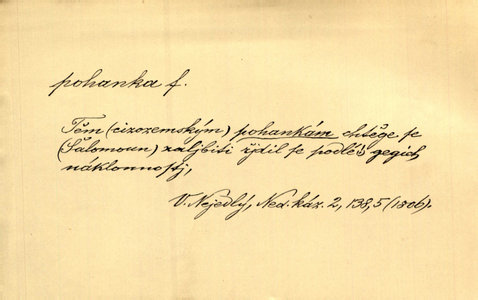 pohanka f.
Těm (cizozemským) pohankám chtěge se
(Šalomoun) zaljbiti řjdil se podlé gegich
náklonnostj,
V. Nejedlý, Ned. káz. 2, 138, 5 (1806).